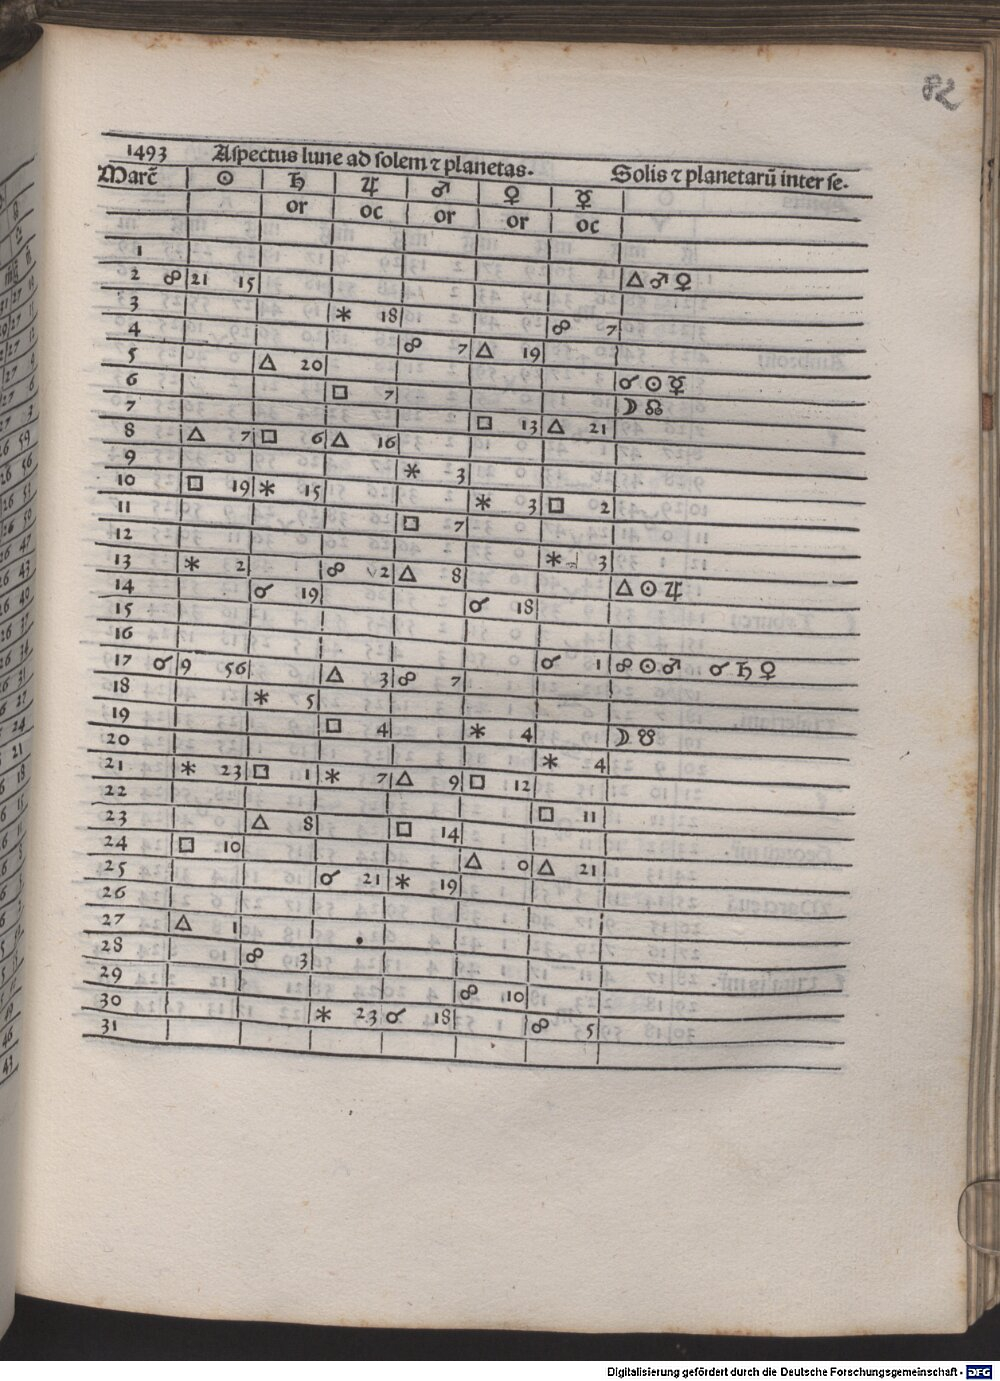 82
1493 Aspectus lune ad solem ⁊ planetas. Solis ⁊ planetarū inter se.
Marc̄ ☉ ♄ ♃ ♂ ♀ ☿
or oc or or oc
1
2 ☍ 21 15 △ ♂ ♀
3 ⚹ 18
4 ☍ 7 △ 19 ☍ 7
5 △ 20
6 □ 7 ☌ ☉ ☿
7 □ 13 △ 21 ☽ ☊
8 △ 7 □ 6 △ 16
9 ⚹ 3
10 □ 19 ⚹ 15 ⚹ 3 □ 2
11 □ 7
12
13 ⚹ 2 ☍ 2 △ 8 ⚹ 3
14 ☌ 19 ☌ 18 △ ☉ ♃
15
16
17 ☌ 9 56 △ 3 ☍ 7 ☌ 1 ☍ ☉ ♂ ☌ ♄ ♀
18 ⚹ 5
19 □ 4 ⚹ 4
20 ⚹ 4 ☽ ☋
21 ⚹ 23 □ 1 ⚹ 7 △ 9 □ 12
22
23 △ 8 □ 14 □ 11
24 □ 10 △ 0
25 ☌ 21 ⚹ 19 △ 21
26
27 △ 1
28 ☍ 3
29 ☍ 10
30 ⚹ 23 ☌ 18 ☍ 5
31
Digitalisierung gefördert durch die Deutsche Forschungsgemeinschaft - DFG